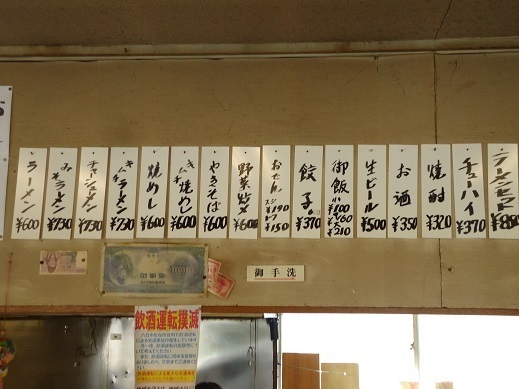 ラーメン
¥600
みそラーメン
¥730
チャーシューメン
¥730
キムチラーメン
¥730
焼めし
¥600
キムチ焼めし
¥600
やきそば
¥600
野菜炒メ
¥600
おでん
スジ¥190
¥150
餃子
¥370
御飯
小¥100
¥160
¥210
生ビール
¥500
お酒
¥350
焼酎
¥320
チューハイ
¥370
ラーメンセット
¥850
御手洗
飲酒運転撲滅